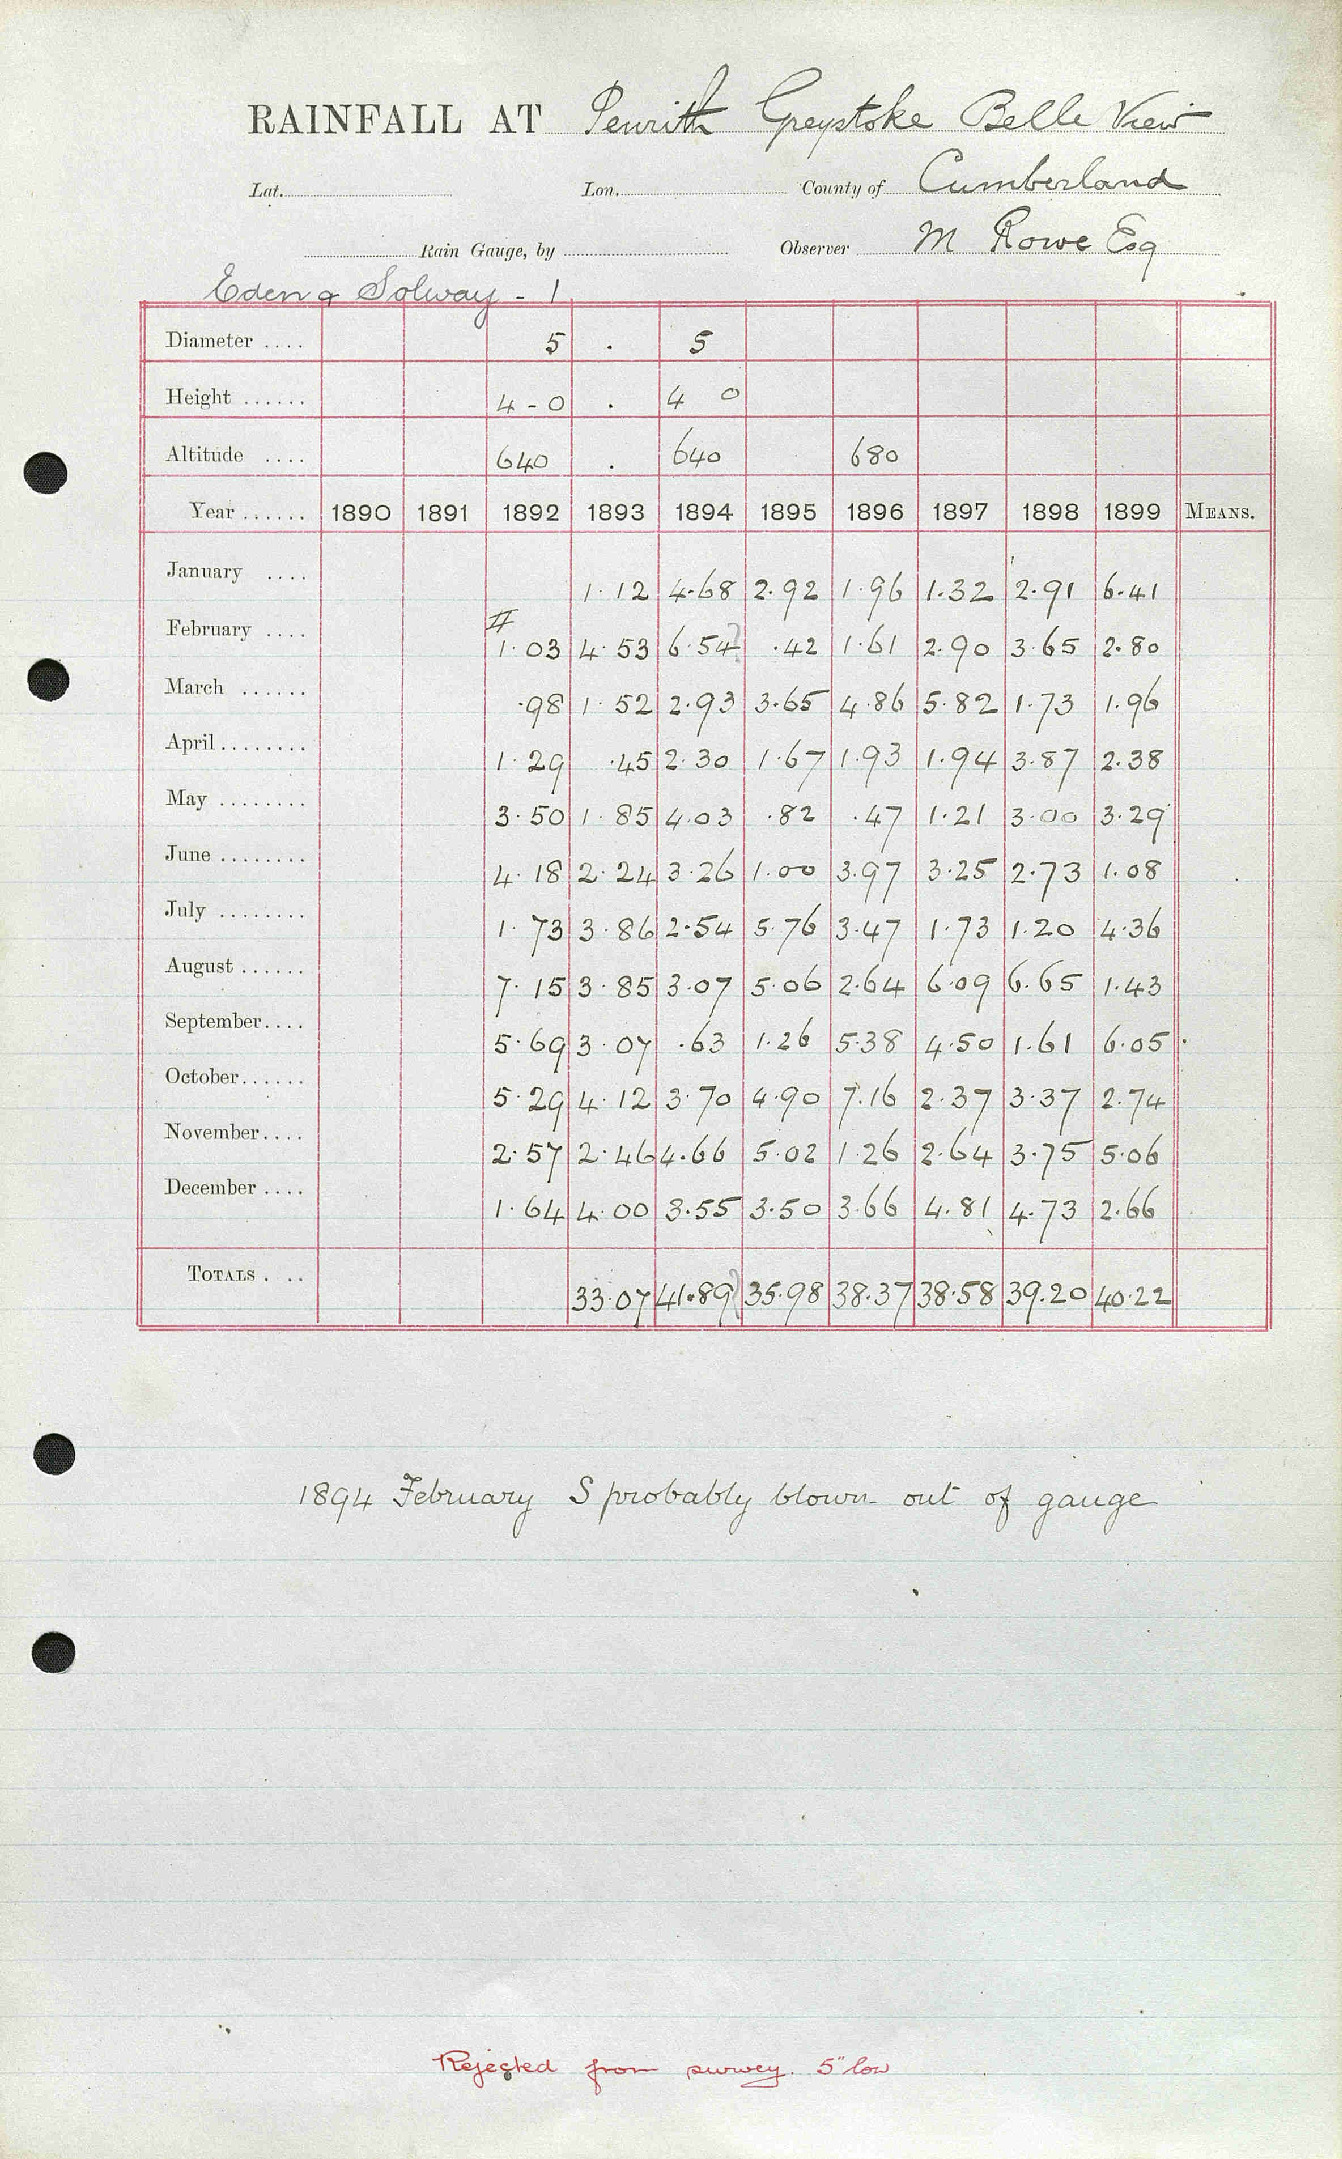 RAINFALL AT Penrith Greystoke Belle View
Lat. Lon. County of Cumberland
Rain Gauge, by Observer M Rowe Esq
Eden & Solway - 1
Diameter .... 5 . 5
Height ...... 4-0 . 4 0
Altitude .... 640 . 640 680
Year ...... 1890 1891 1892 1893 1894 1895 1896 1897 1898 1899 MEANS.
January .... 1.12 4.68 2.92 1.96 1.32 2.91 6.41
February .... # 1.03 4.53 6.54? .42 1.61 2.90 3.65 2.80
March ...... .98 1.52 2.93 3.65 4.86 5.82 1.73 1.96
April ........ 1.29 .45 2.30 1.67 1.93 1.94 3.87 2.38
May ........ 3.50 1.85 4.03 .82 .47 1.21 3.00 3.29
June ........ 4.18 2.24 3.26 1.00 3.97 3.25 2.73 1.08
July ........ 1.73 3.86 2.54 5.76 3.47 1.73 1.20 4.36
August ...... 7.15 3.85 3.07 5.06 2.64 6.09 6.65 1.43
September .... 5.69 3.07 .63 1.26 5.38 4.50 1.61 6.05
October ...... 5.29 4.12 3.70 4.90 7.16 2.37 3.37 2.74
November .... 2.57 2.46 4.66 5.02 1.26 2.64 3.75 5.06
December .... 1.64 4.00 3.55 3.50 3.66 4.81 4.73 2.66
TOTALS . .. 33.07 41.89? 35.98 38.37 38.58 39.20 40.22
1894 February S probably blown out of gauge
Rejected from survey. 5" low